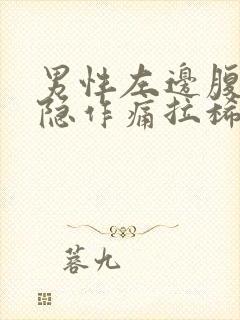 男性左邊腹
隐作痛拉稀
蓉九